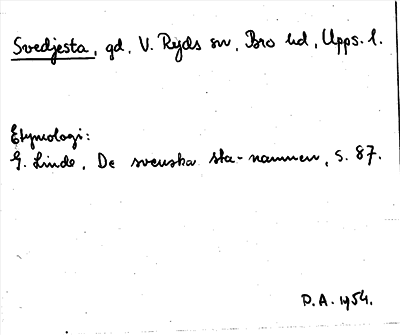 Svedjesta, gd, V. Ryds sn, Bro hd, Upps. l.
Etymologi:
G. Linde, De svenska sta-namnen, s. 87.
D.A. 1954.